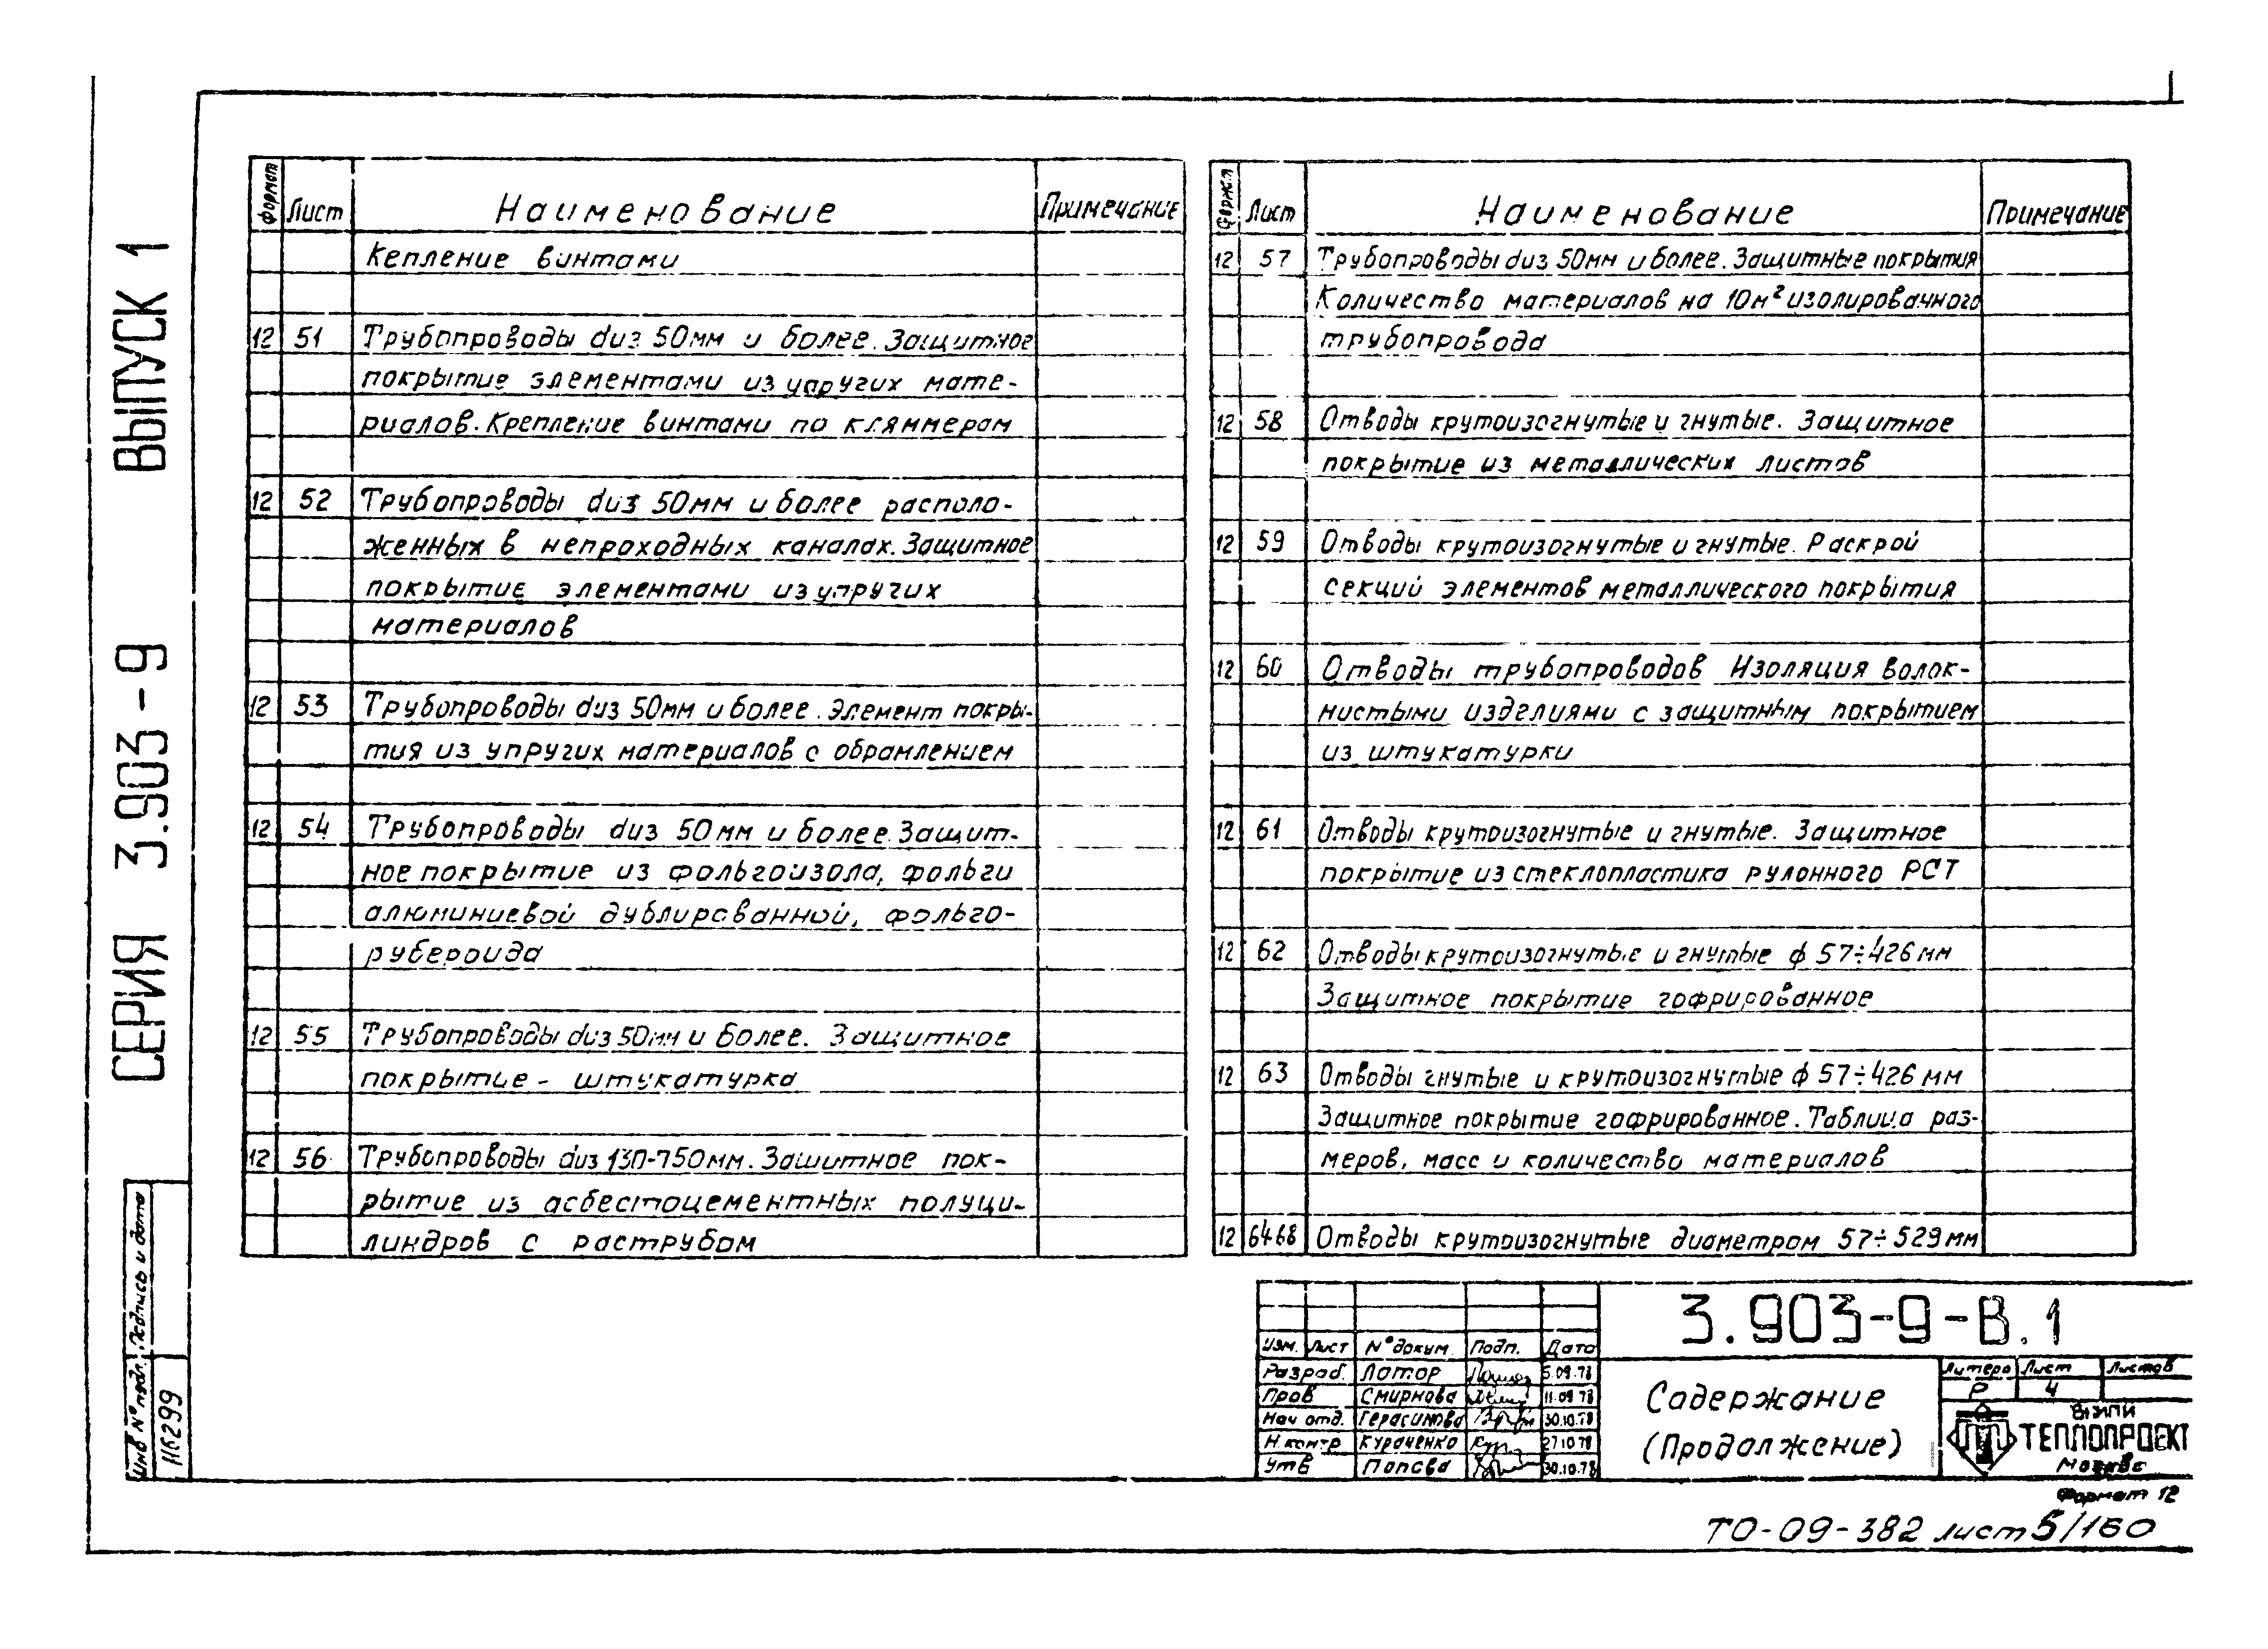 СЕРИЯ 3.903-9 ВЫПУСК 1
Формат Лист Наименование Примечание
Кепление винтами
12 51 Трубопроводы dиз 50мм и более. Защитное
покрытие элементами из упругих мате-
риалов. Крепление винтами по кляммерам
12 52 Трубопроводы dиз 50мм и более располо-
женных в непроходных каналах. Защитное
покрытие элементами из упругих
материалов
12 53 Трубопроводы dиз 50мм и более. Элемент покры-
тия из упругих материалов с обрамлением
12 54 Трубопроводы dиз 50мм и более. Защит-
ное покрытие из фольгоизола, фольги
алюминиевой дублированной, фольго-
рубероида
12 55 Трубопроводы dиз 50мм и более. Защитное
покрытие - штукатурка
12 56 Трубопроводы dиз 130-750мм. Защитное пок-
рытие из асбестоцементных полуци-
линдров с раструбом
Формат Лист Наименование Примечание
12 57 Трубопроводы dиз 50мм и более. Защитные покрытия
Количество материалов на 10м² изолировачного
трубопровода
12 58 Отводы крутоизогнутые и гнутые. Защитное
покрытие из металлических листов
12 59 Отводы крутоизогнутые и гнутые. Раскрой
секций элементов металлического покрытия
12 60 Отводы трубопроводов Изоляция волок-
нистыми изделиями с защитным покрытием
из штукатурки
12 61 Отводы крутоизогнутые и гнутые. Защитное
покрытие из стеклопластика рулонного РСТ
12 62 Отводы крутоизогнутые и гнутые ϕ 57÷426 мм
Защитное покрытие гофрированное
12 63 Отводы гнутые и крутоизогнутые ϕ 57÷426 мм
Защитное покрытие гофрированное. Таблица раз-
меров, масс и количество материалов
12 64-68 Отводы крутоизогнутые диаметром 57÷529 мм
Инв № подл. Подпись и дата
116299
3.903-9-В.1
Изм. Лист № докум. Подп. Дата
Разраб. Лотор 5.09.78
Пров Смирнова 11.09.78
Нач отд. Герасимова 30.10.78
Н.контр Кураченко 27.10.78
Утв Попова 30.10.78
Содержание
(Продолжение)
Литера Лист Листов
Р 4
ВНИПИ
ТЕПЛОПРОЕКТ
Москва
Формат 12
ТО-09-382 лист 5/160